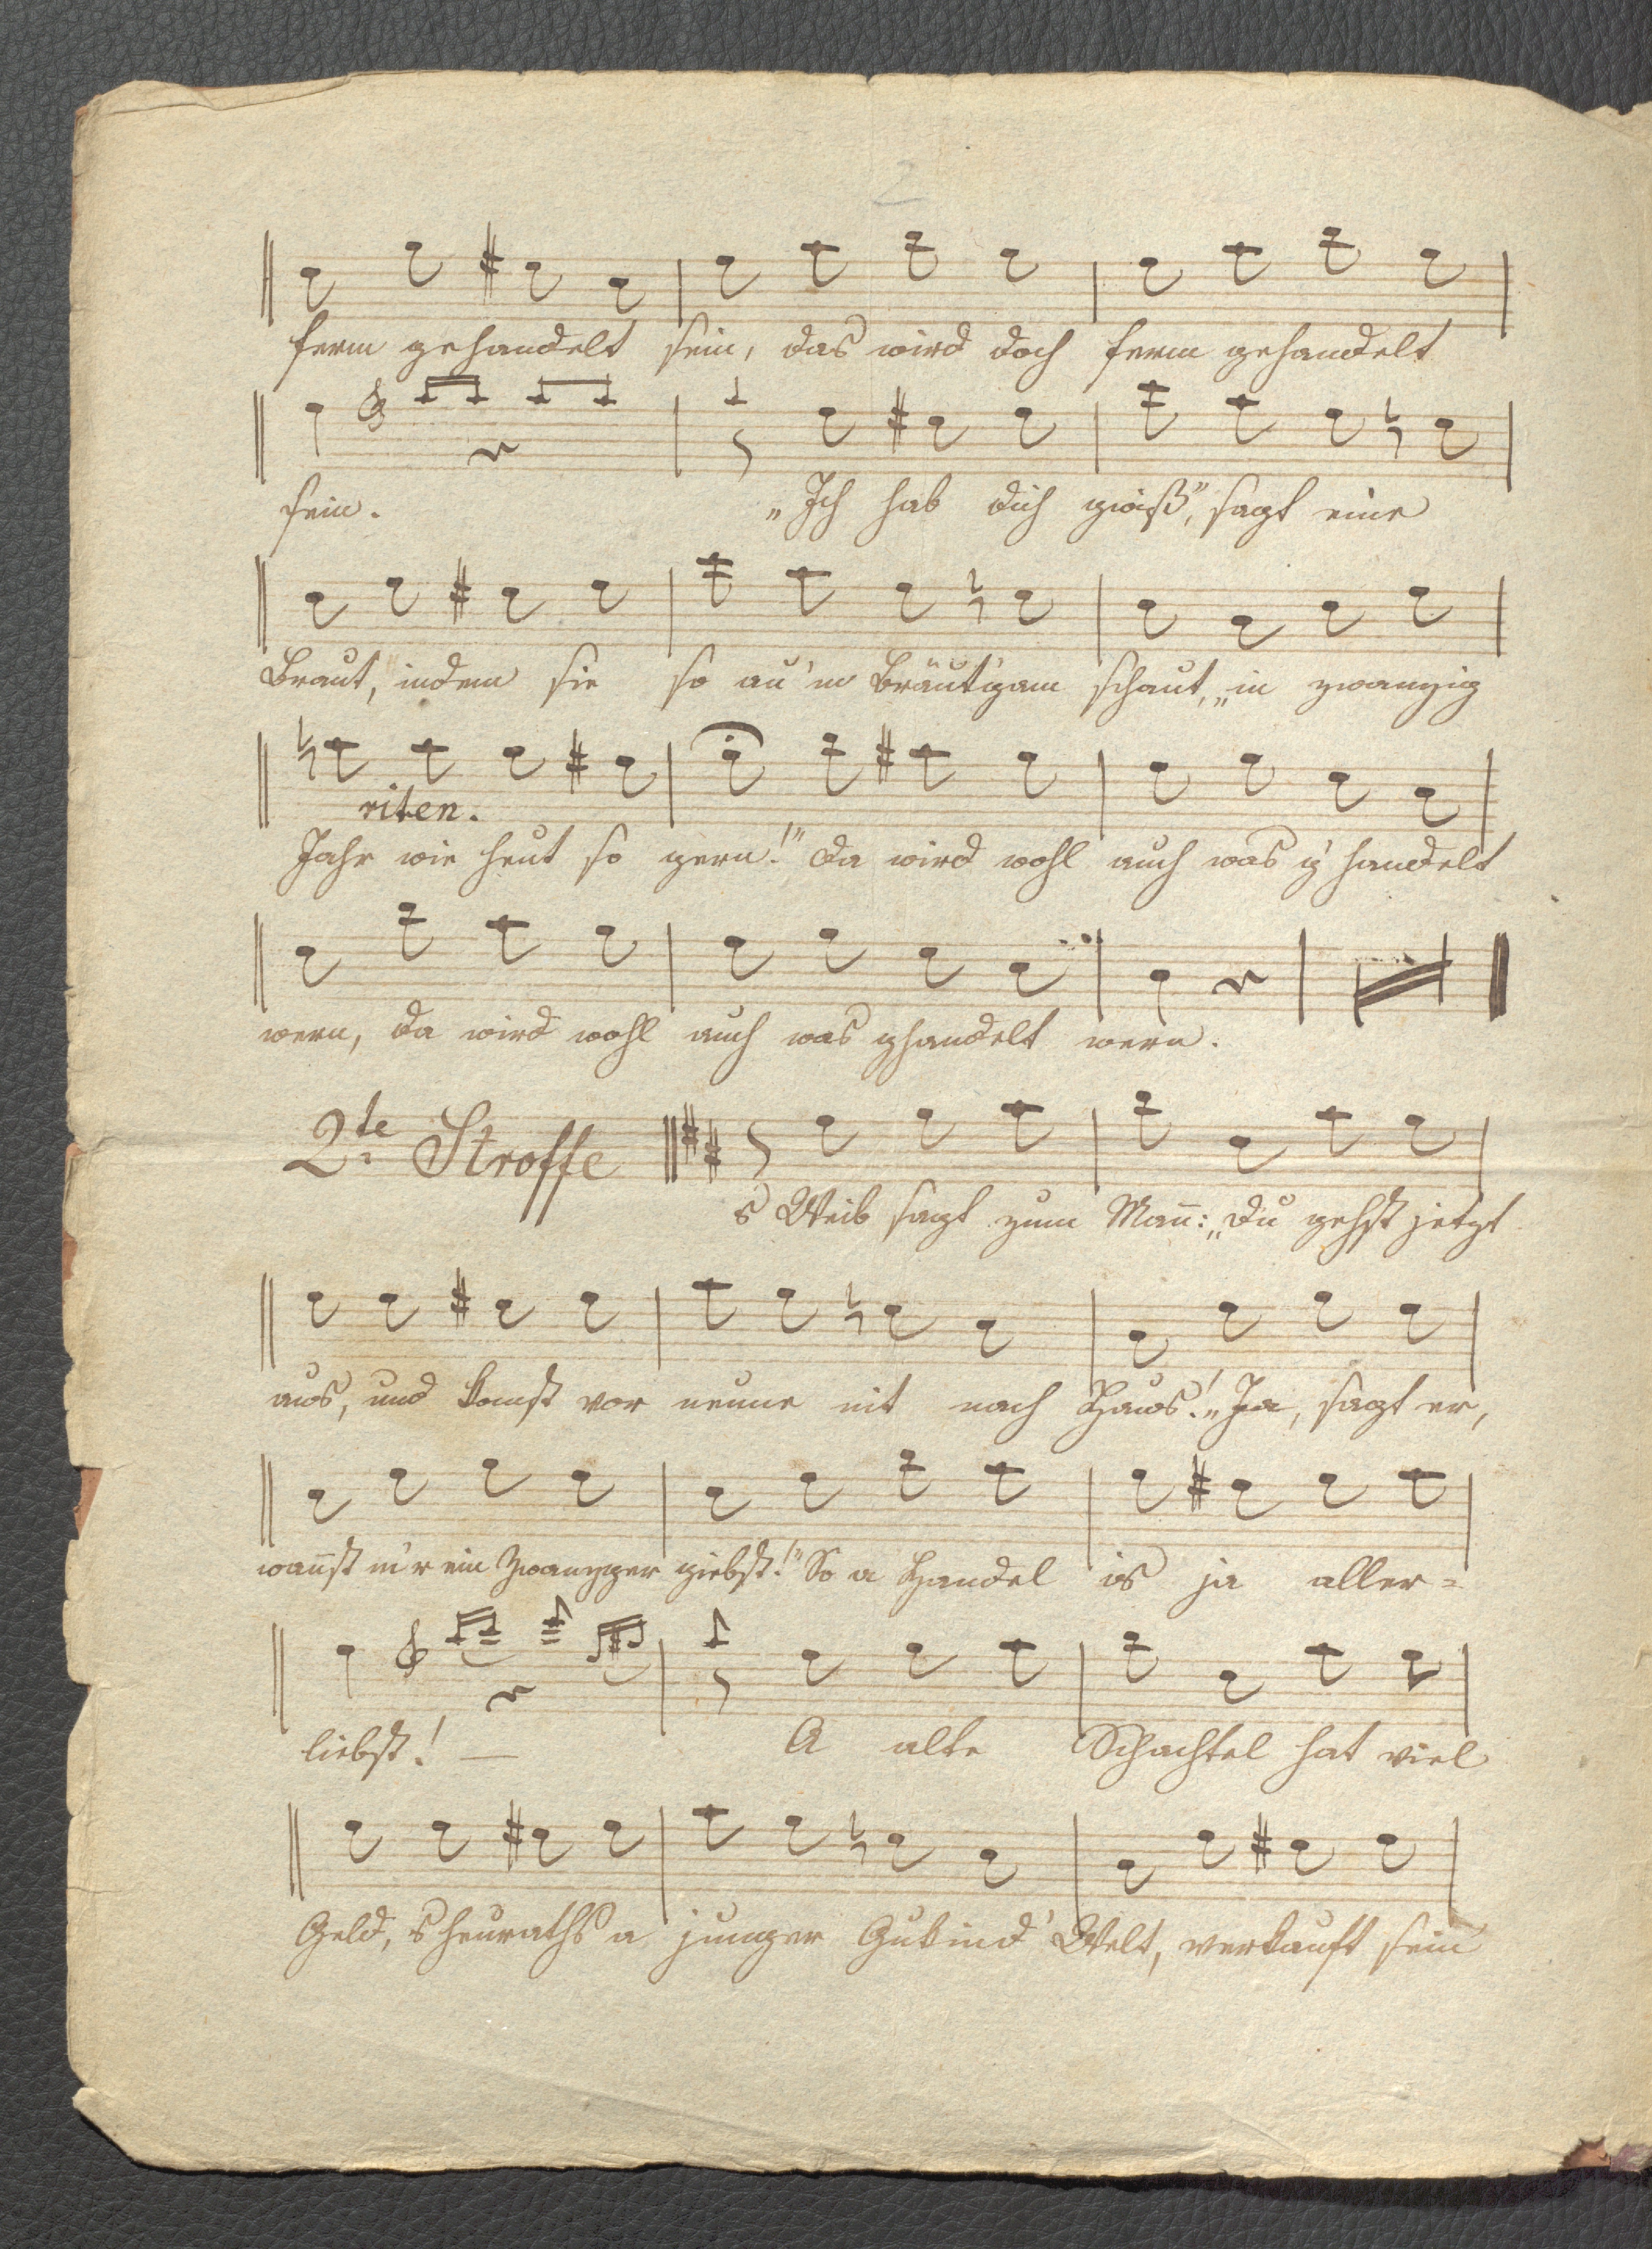 2
ferm gehandelt sein, das wird doch ferm gehandelt
sein. „Ich hab dich gwiß", sagt eine
Braut, indem sie so au'm Bräut'gam schaut, „in zwanzig
riten.
Jahr wie heut so gern!" da wird wohl auch was g'handelt
wern, da wird wohl auch was ghandelt wern.
2te Stroffe
s Weib sagt zum Mañ: „Du gehst jetzt
aus, und komst vor neune nit nach Haus!„ Ja, sagt er,
wañst m'r ein Zwanzger giebst!" So a Handel is ja aller=
liebst! —
A alte Schachtel hat viel
Geld, s'heuraths a junger Welt, verkauft sein